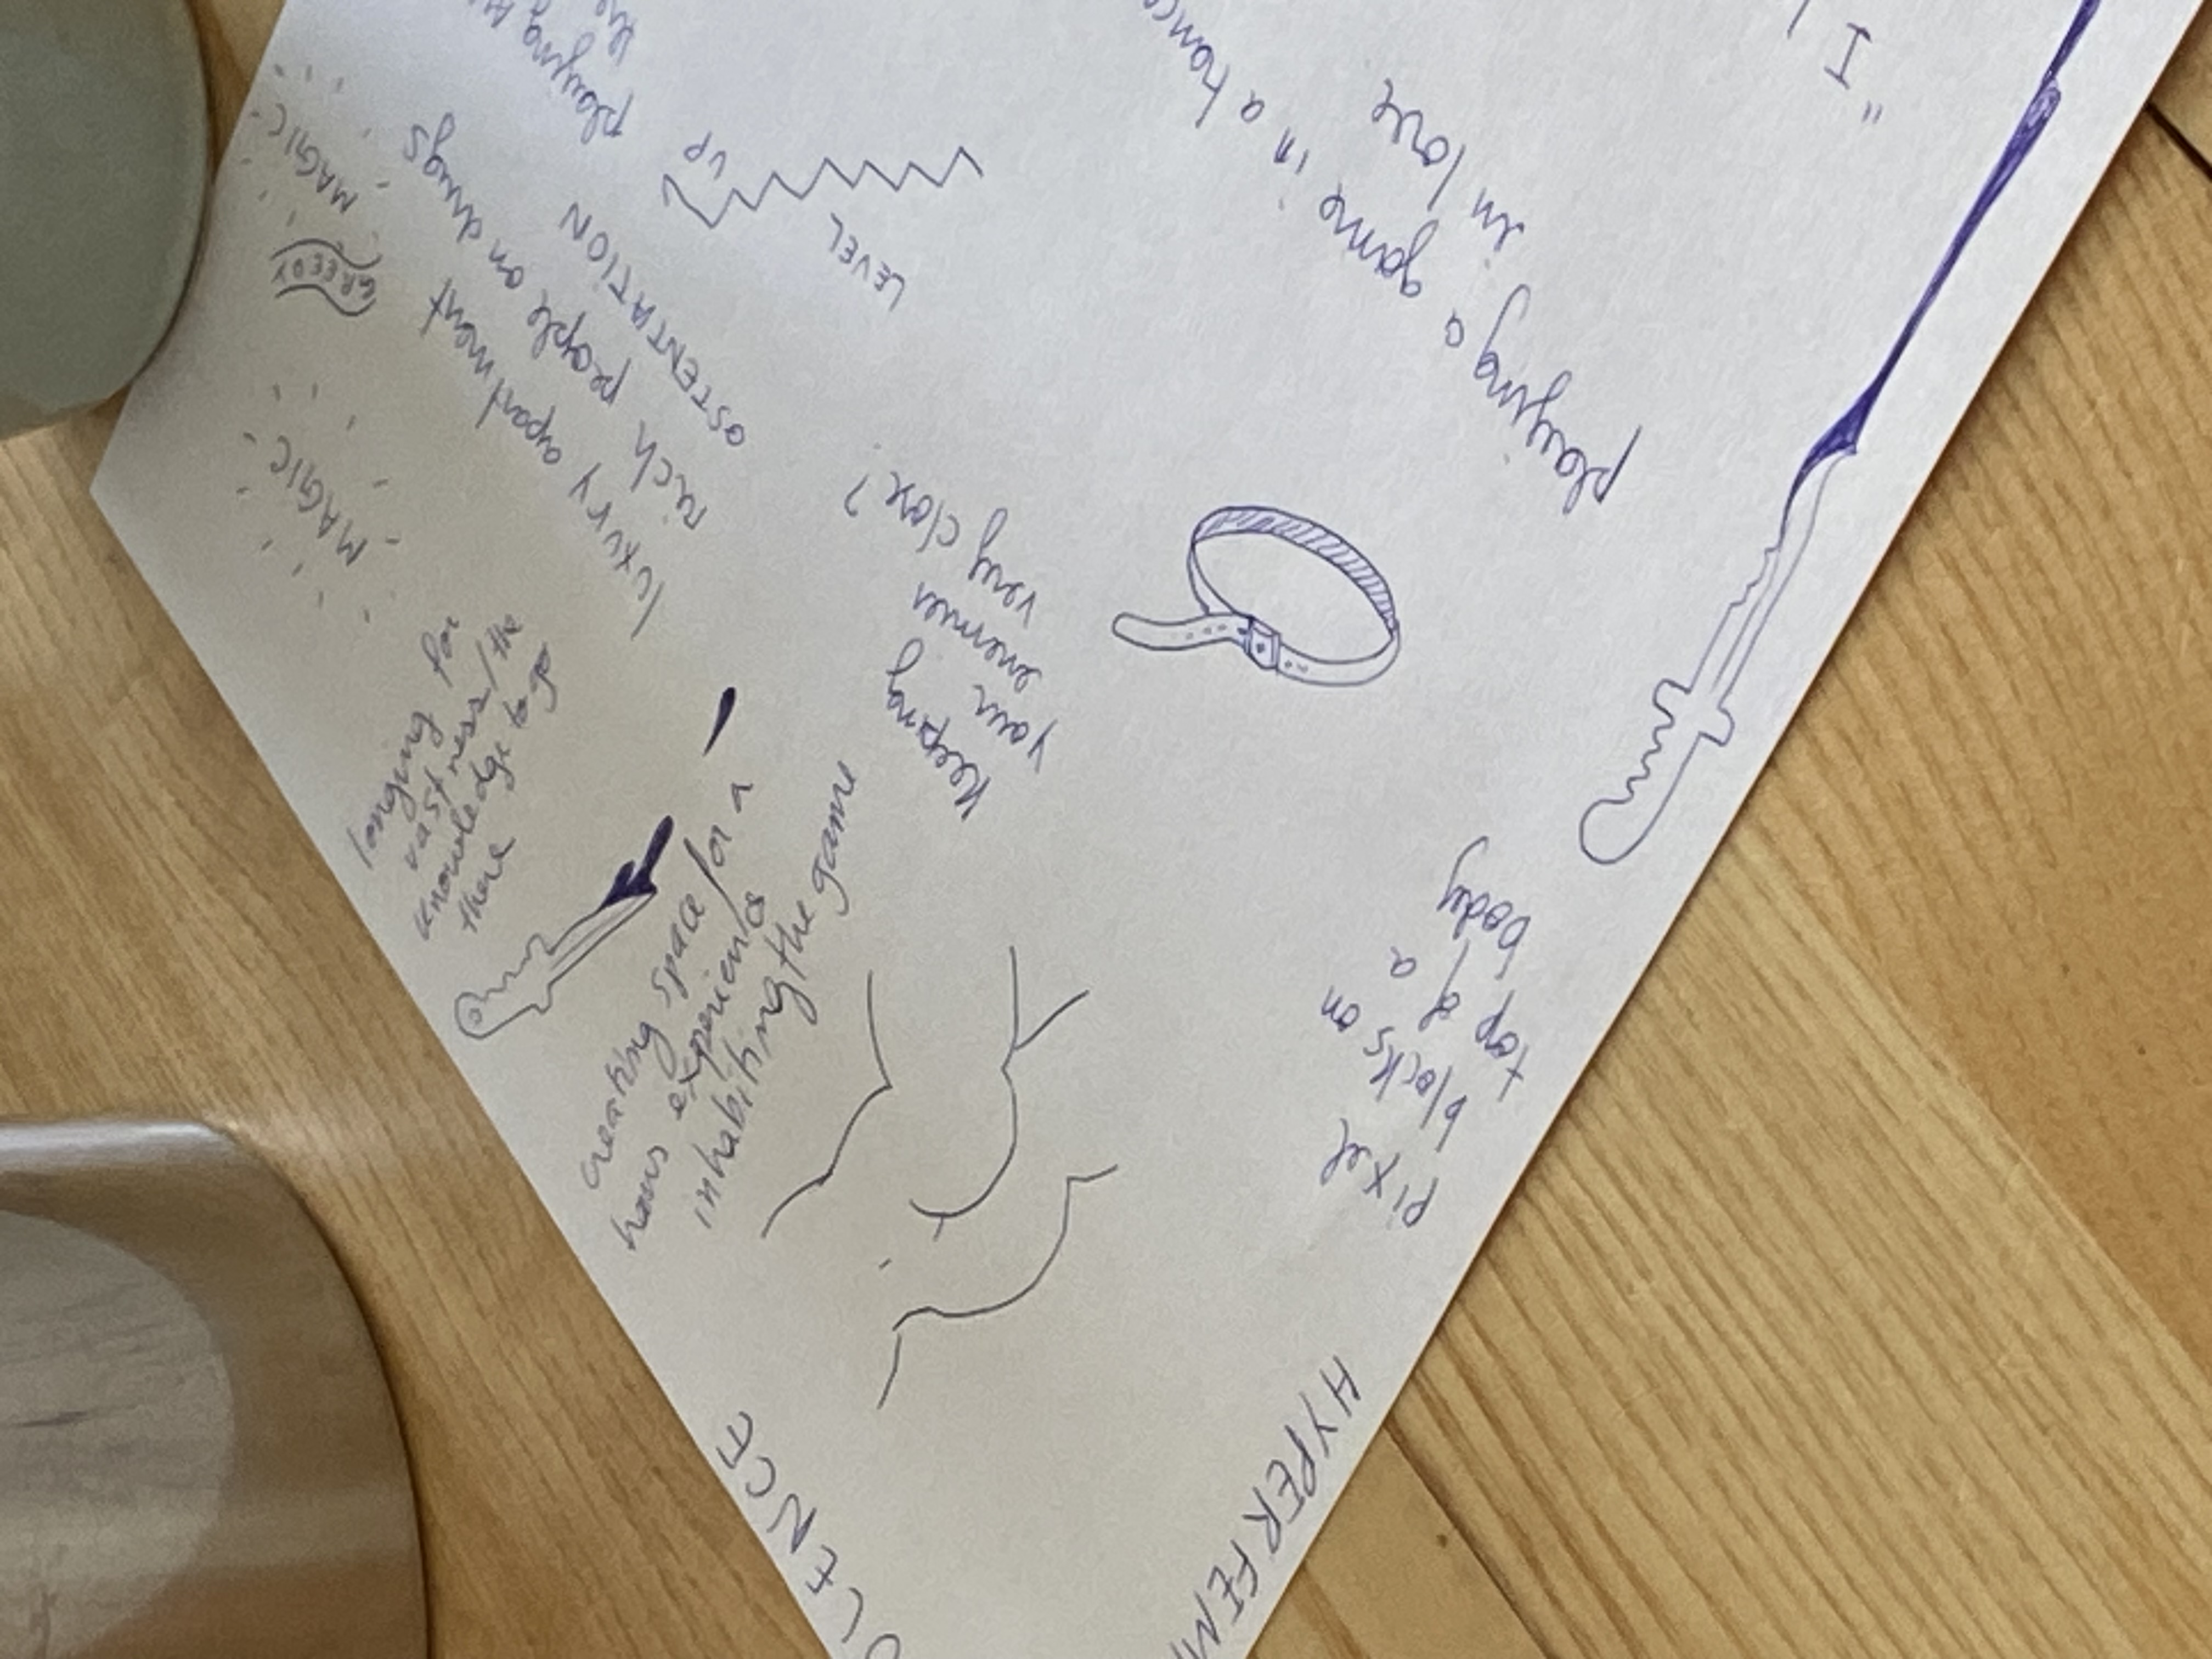 "I
in love
playing a game in a
playing
UP
LEVEL
OSTENTATION
rich people on drugs
luxury apartment
MAGIC
GREEDY
MAGIC
Keeping
your enemies
very close?
longing for
vastness/the
knowledge to go
there
creating space for a
inhabiting the game
pixel
blocks on
top of a
body
HYPERFEM
OLENCE